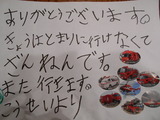 ありがとうございます。
きょうはとまりに行けなくて
ざんねんです。
また行きます。
こうせいより